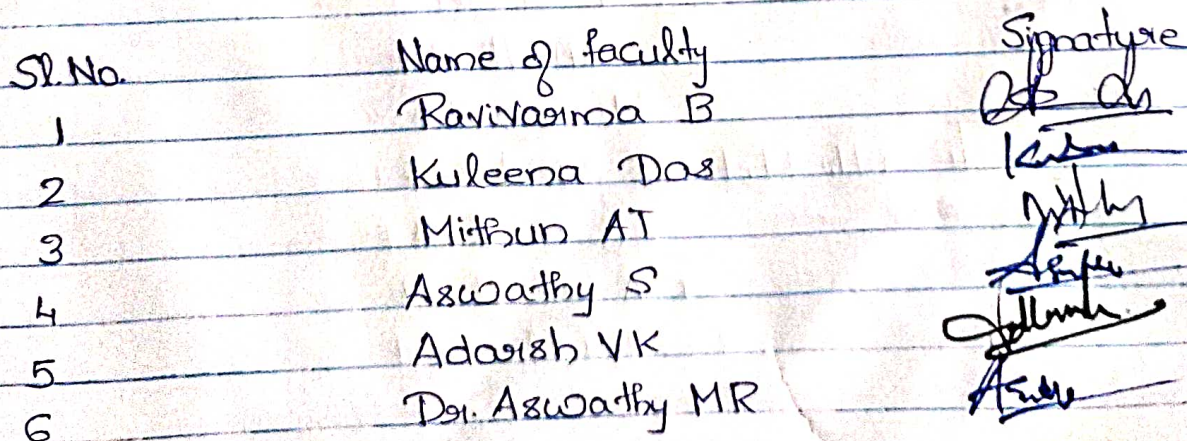 Sl. No. Name of faculty Signature
1 Ravivarma B
2 Kuleena Das
3 Mithun AJ
4 Aswathy S
5 Adarsh VK
6 Dr. Aswathy MR